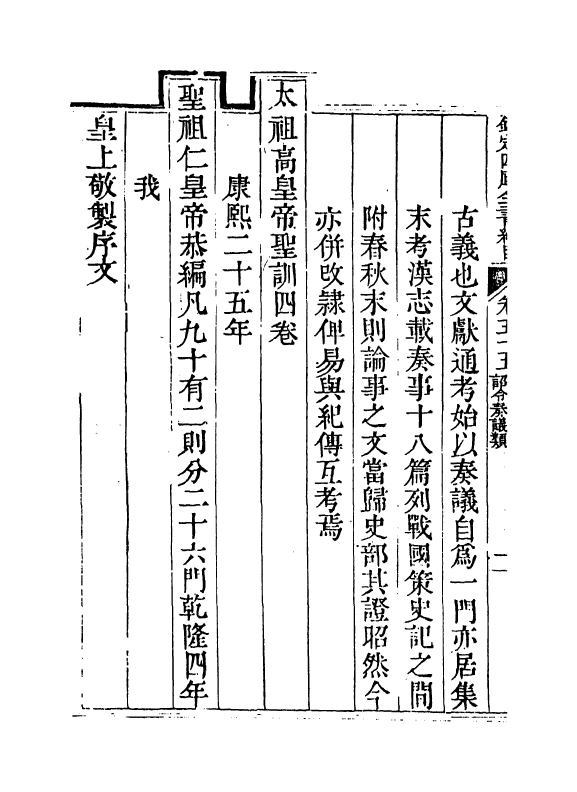 欽定四庫全書總目 卷五十五 詔令奏議類 二
古義也文獻通考始以奏議自爲一門亦居集
末考漢志載奏事十八篇列戰國策史記之間
附春秋末則論事之文當歸史部其證昭然今
亦併改隸俾易與紀傳互考焉
太祖高皇帝聖訓四卷
康熙二十五年
聖祖仁皇帝恭編凡九十有二則分二十六門乾隆四年
我
皇上敬製序文